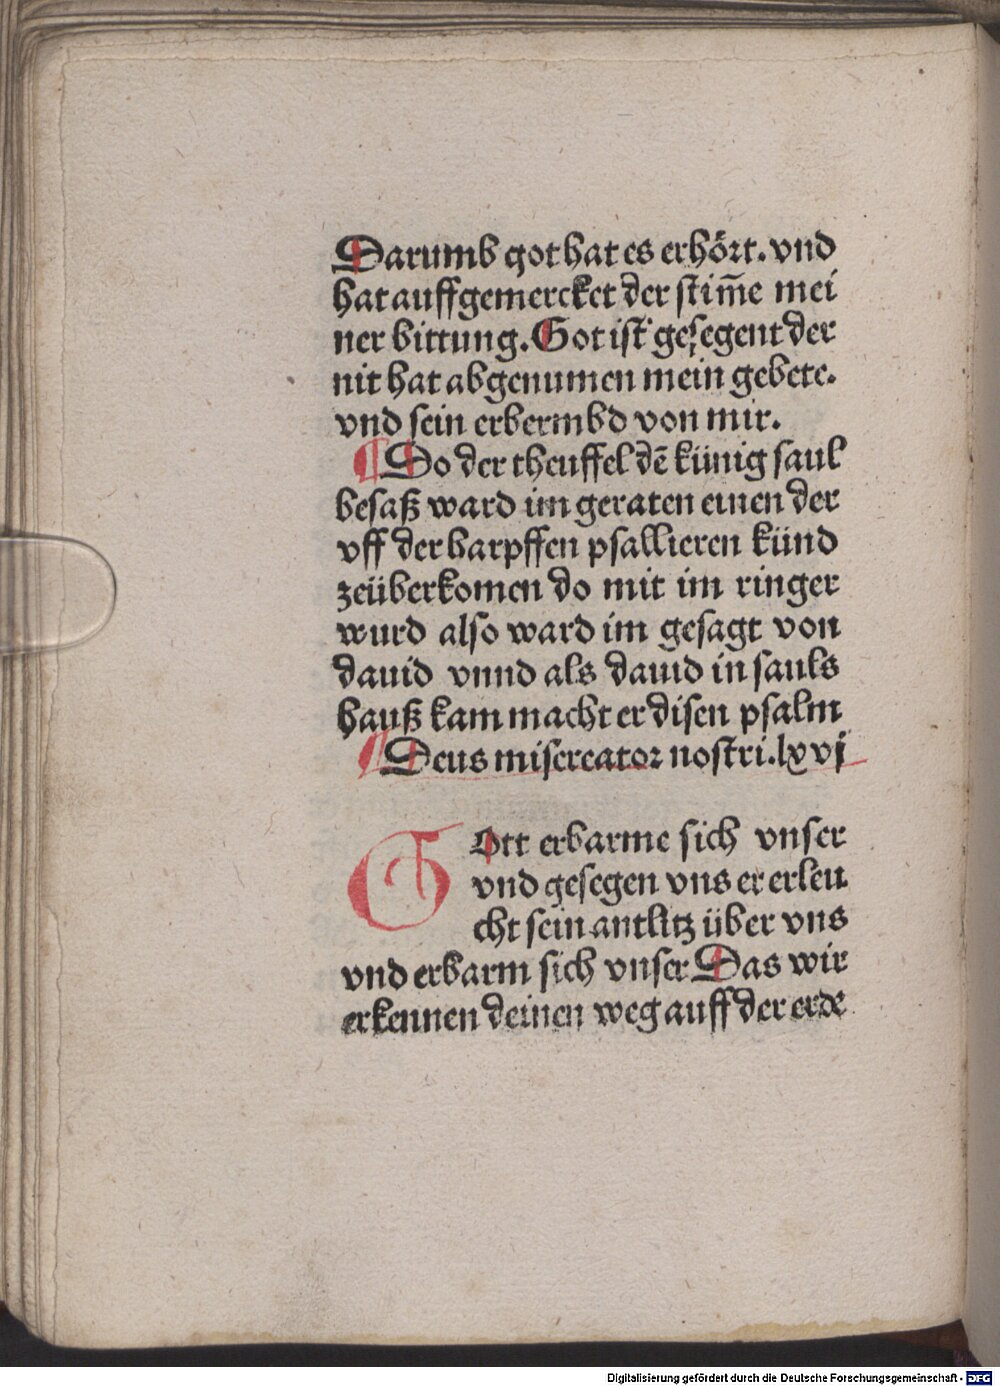 Darumb got hat es erhört. vnd
hat auffgemercket der stim̄e mei
ner bittung. Got ist gesegent der
nit hat abgenumen mein gebete.
vnd sein erbermbd von mir.
¶ Do der theuffel dē künig saul
besaß ward im geraten einen der
vff der harpffen psallieren künd
zeüberkomen do mit im ringer
wurd also ward im gesagt von
dauid vnnd als dauid in sauls
hauß kam macht er disen psalm
¶ Deus misereator nostri. lxvj
Gott erbarme sich vnser
vnd gesegen vns er erleu
cht sein antlitz über vns
vnd erbarm sich vnser Das wir
erkennen deinen weg auff der erde
Digitalisierung gefördert durch die Deutsche Forschungsgemeinschaft - DFG